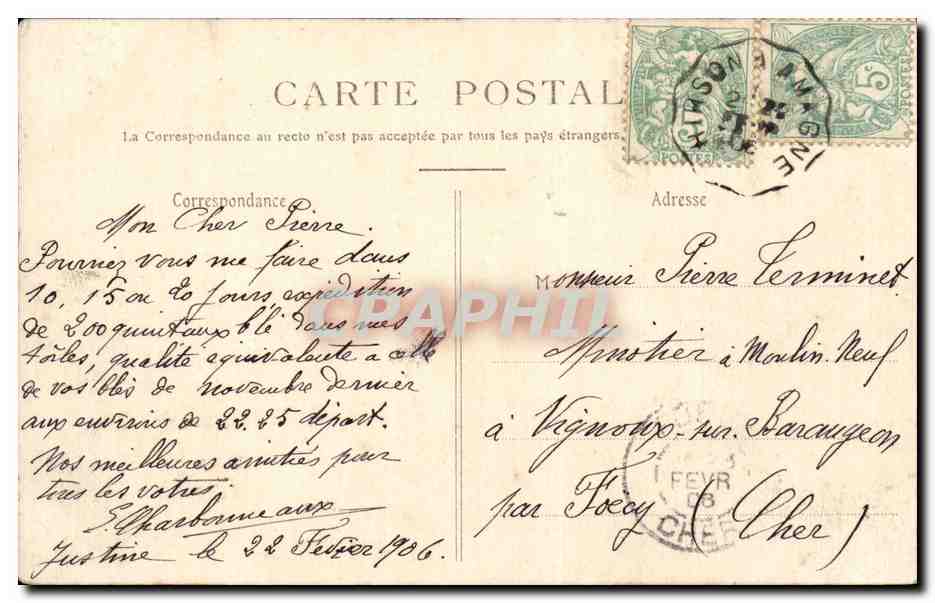 CARTE POSTALE
La Correspondance au recto n'est pas acceptée par tous les pays étrangers.
Correspondance
Mon Cher Pierre.
Pourriez vous me faire dans
10, 15 ou 20 jours, expédition
de 200 quintaux blé dans mes
toiles, qualité équivalente à celle
de vos blés de novembre dernier
aux environs de 22.25 départ.
Nos meilleures amitiés pour
tous les votres.
E. Charbonneaux
Justine le 22 Février 1906.
Adresse
Monsieur Pierre Terminet
Minotier à Moulin-Neuf
à Vignoux-sur-Barangeon
par Foëcy (Cher)
HIRSON A AMAGNE
5c
POSTES
POSTES
FEVR
06
CHER
CPAPHIL